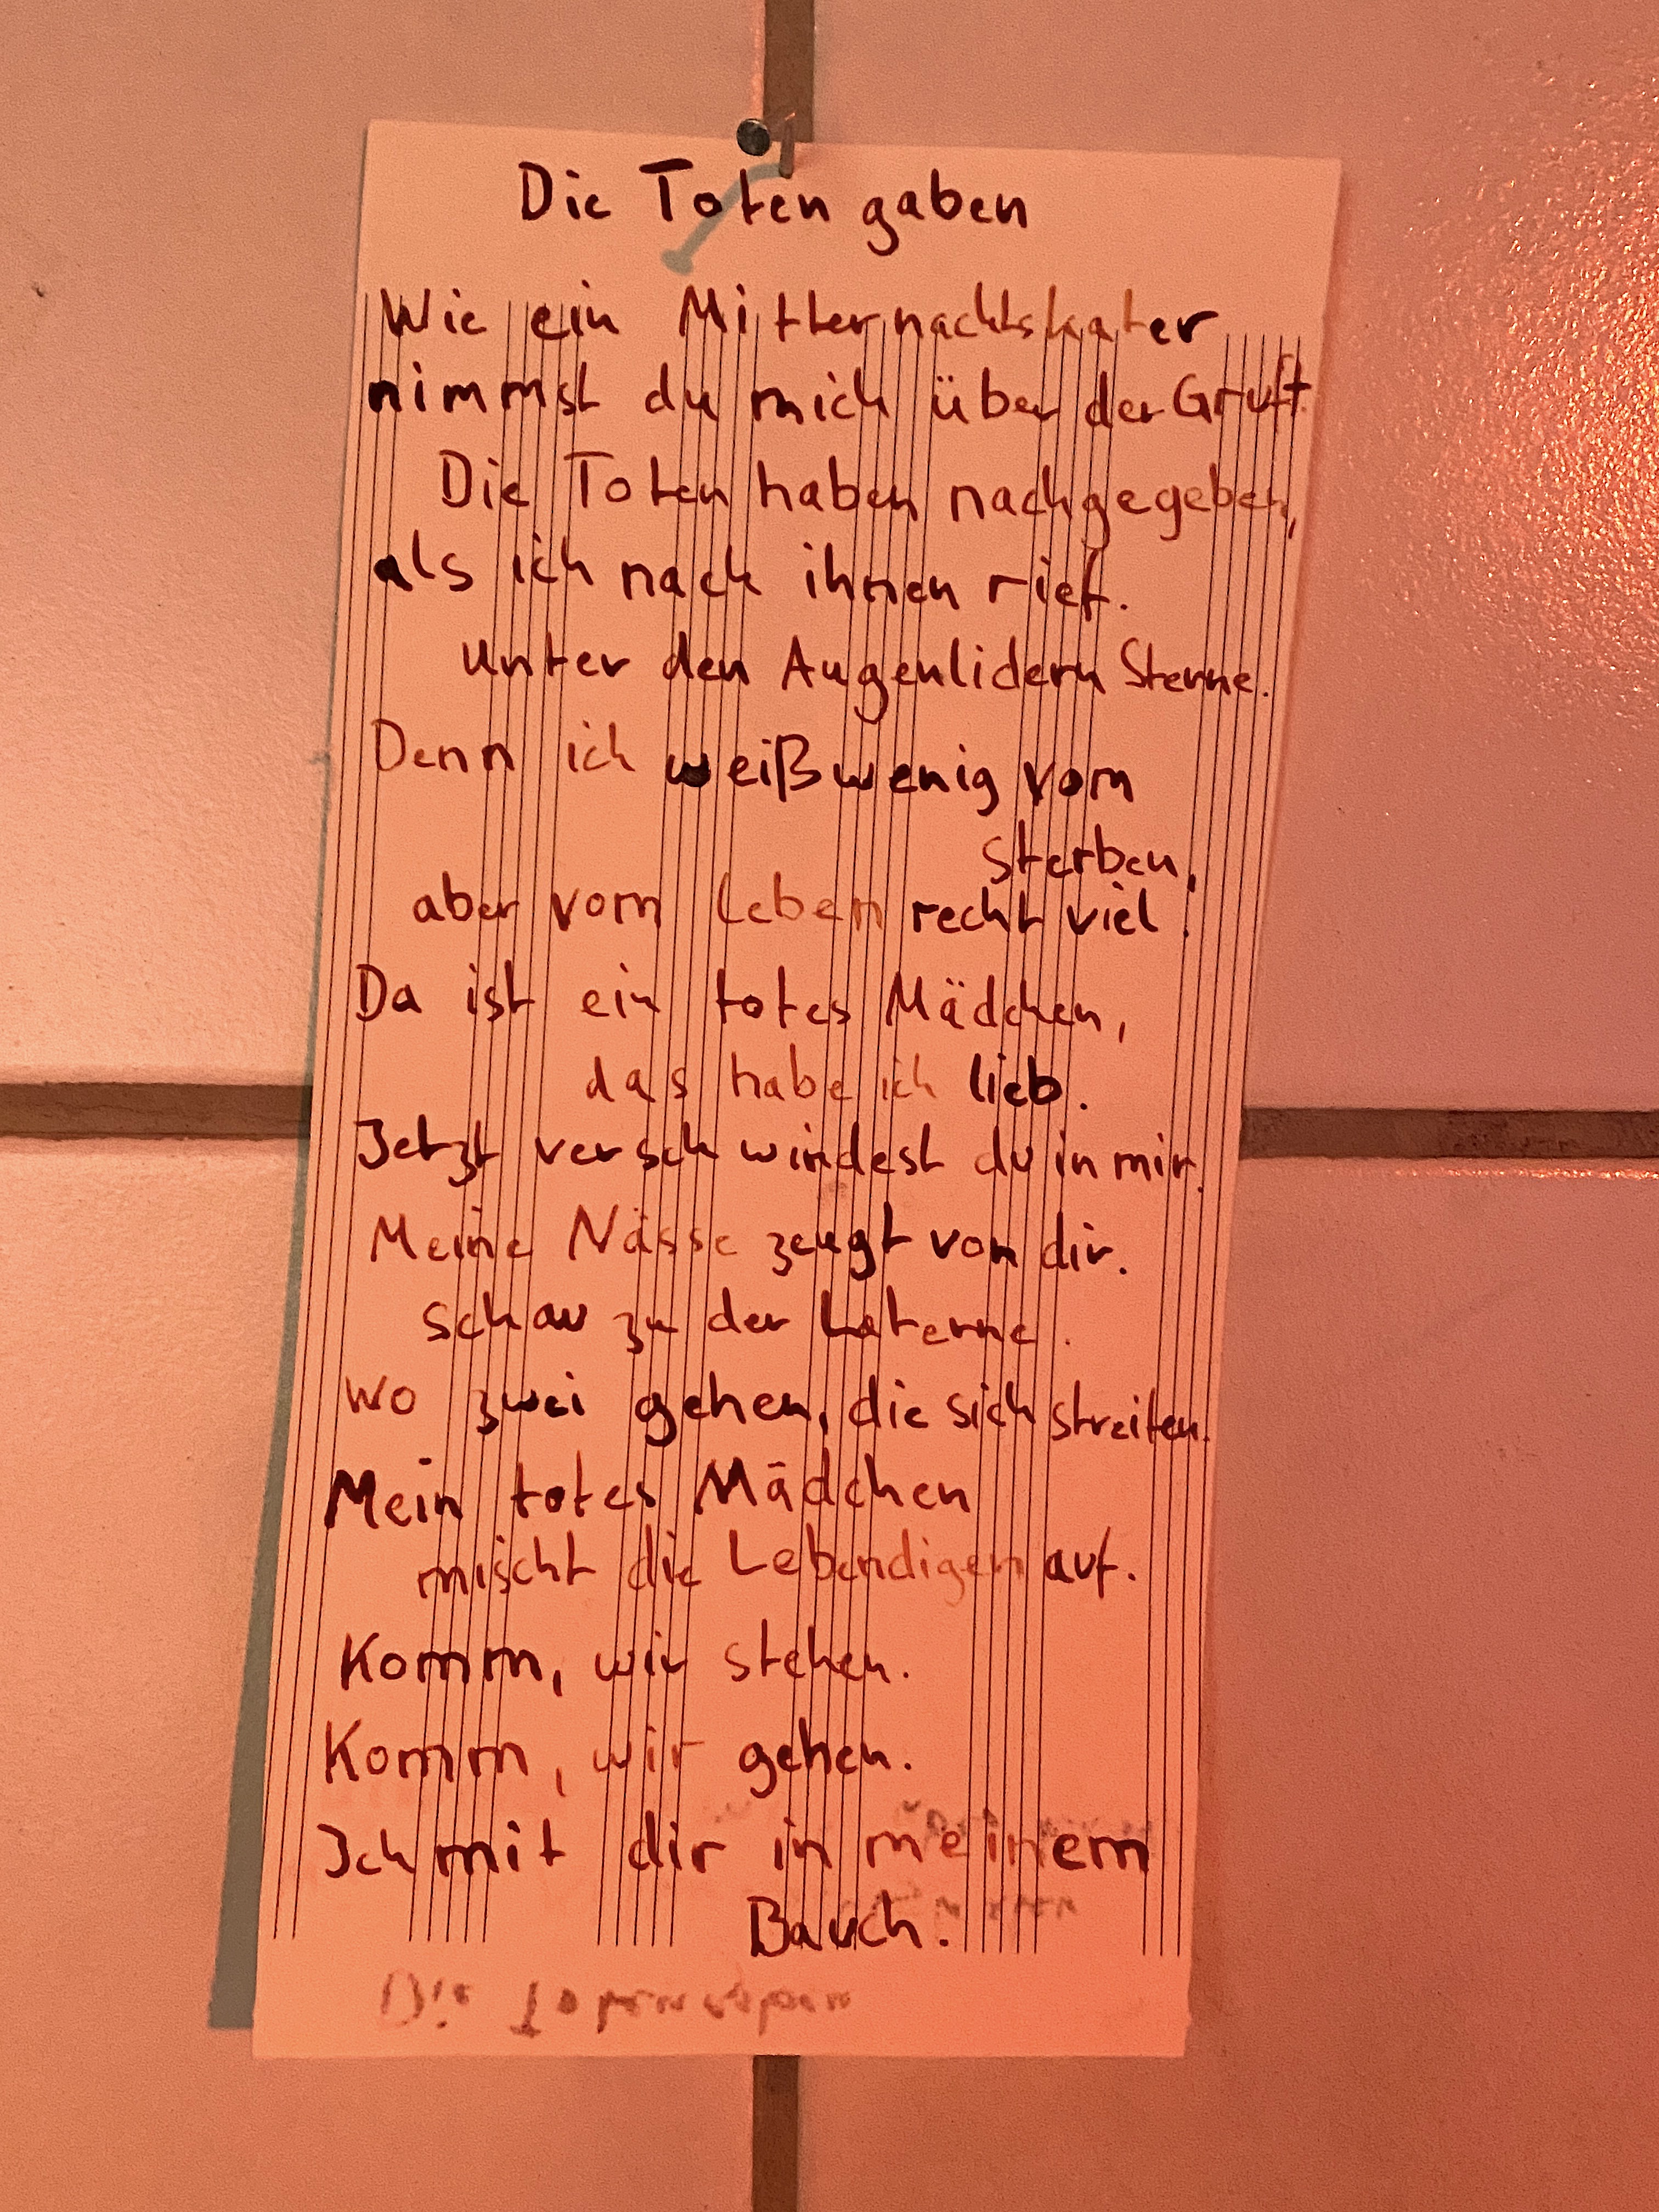 Die Toten gaben
Wie ein Mitternachtskater
nimmst du mich über der Gruft.
Die Toten haben nachgegeben,
als ich nach ihnen rief.
Unter den Augenlidern Sterne.
Denn ich weiß wenig vom
Sterben,
aber vom Leben recht viel.
Da ist ein totes Mädchen,
das habe ich lieb.
Jetzt verschwindest du in mir.
Meine Nässe zeugt von dir.
Schau zu der Laterne.
Wo zwei gehen, die sich streiten.
Mein totes Mädchen
mischt die Lebendigen auf.
Komm, wir stehen.
Komm, wir gehen.
Ich mit dir in meinem
Bauch.